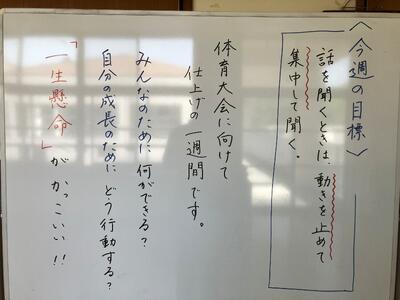 〈今週の目標〉
話を聞くときは、動きを止めて
集中して聞く。
体育大会に向けて
仕上げの一週間です。
みんなのために何ができる？
自分の成長のためにどう行動する？
「一生懸命」がかっこいい!!